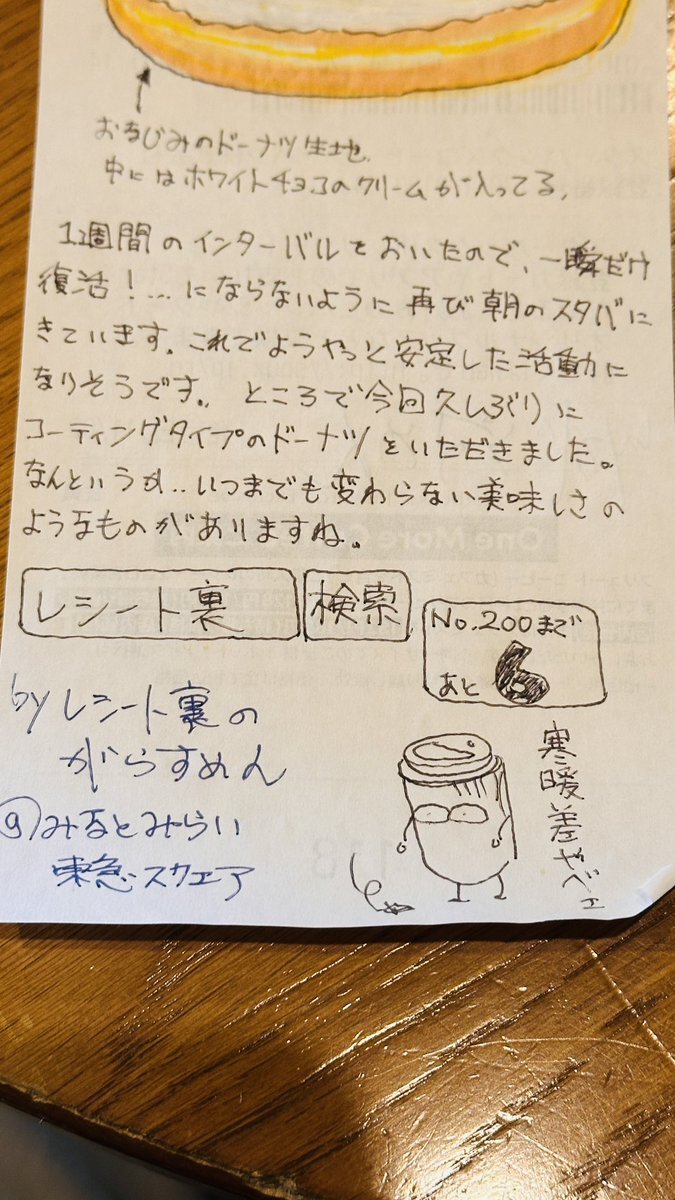 おなじみのドーナツ生地、
中にはホワイトチョコのクリームが入ってる。
1週間のインターバルをおいたので、一瞬だけ
復活！…にならないように再び朝のスタバに
きています。これでようやっと安定した活動に
なりそうです。ところで今回久しぶりに
コーティングタイプのドーナツをいただきました。
なんというか…いつまでも変わらない美味しさの
ようなものがありますね。
レシート裏 検索
No.200まで
あと6
by レシート裏の
がらすめん
@みなとみらい
東急スクエア
寒暖差やべェ
One More C